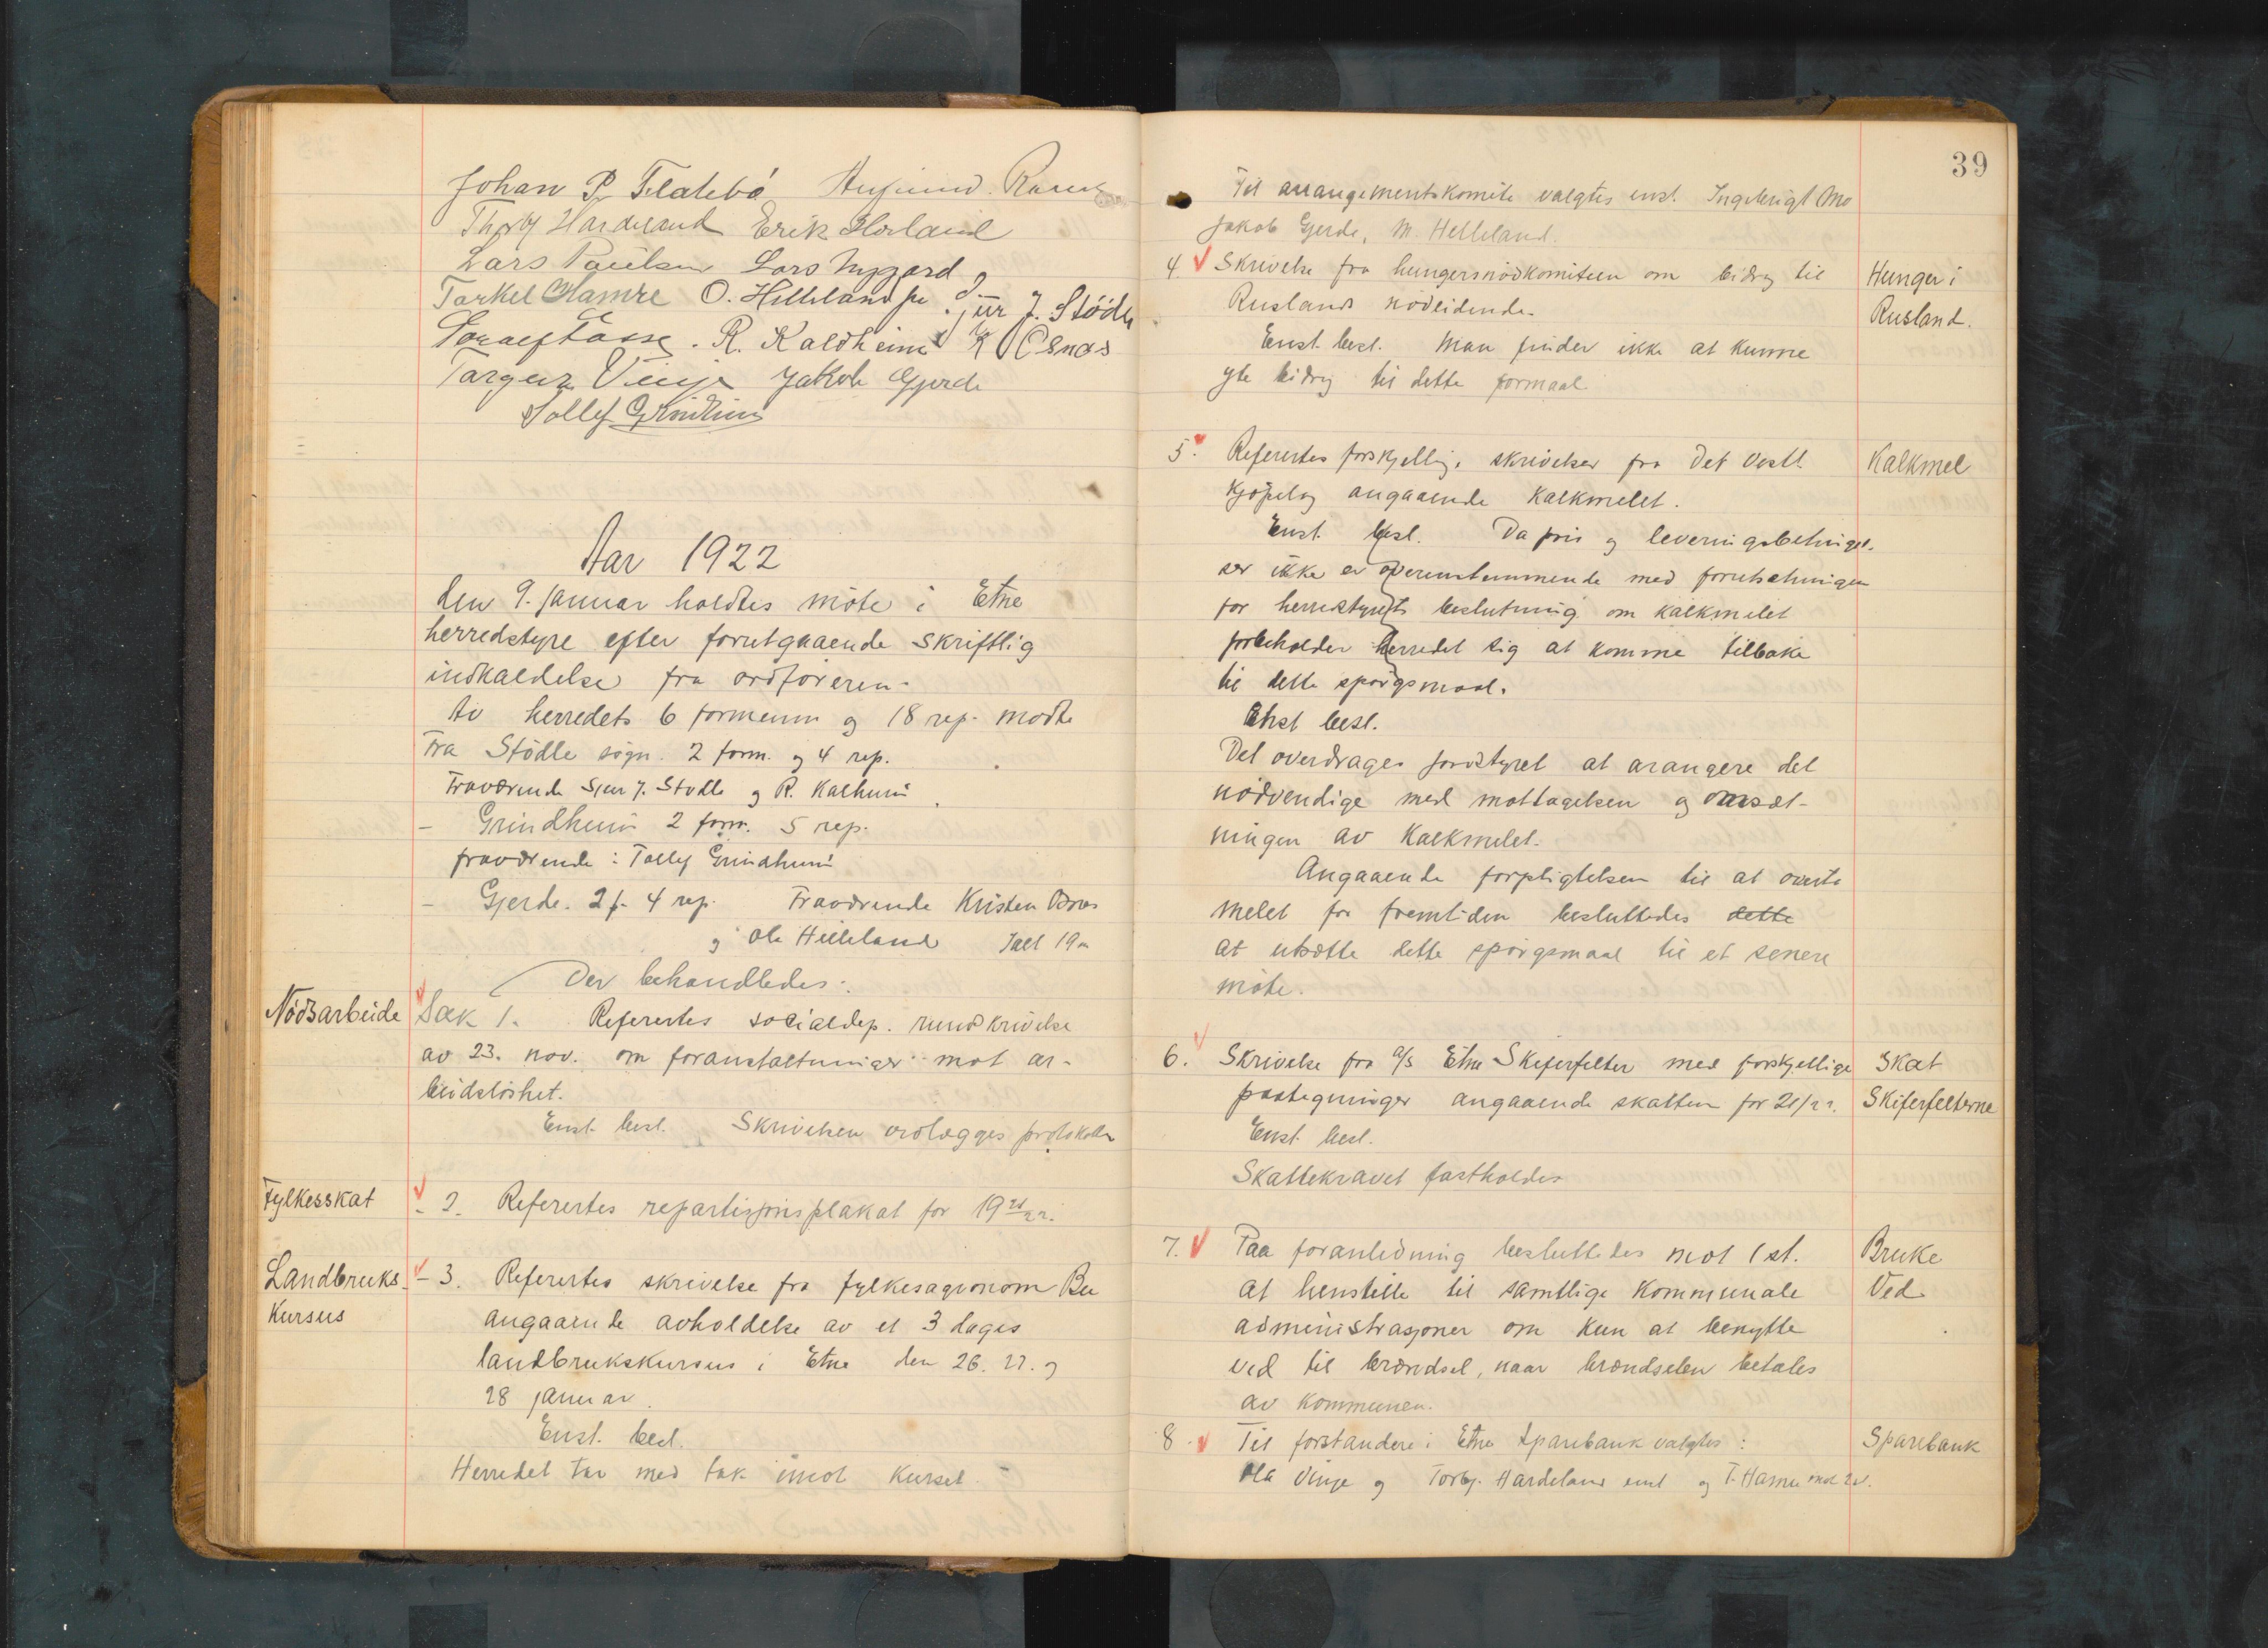 Johan P. Flatebö
Thorbj Hardeland Erik Hovland
Lars Paulsen Lars Nygard
Torkel Hamre O. Helleland Sjur J. Stödle
R. Kaldheim K Osnes
Torgeir Vinje Jakob Gjerde
Tollef Grindheim
Aar 1922
den 9. januar holdtes möte i Etne
herredstyre efter forutgaaende skriftlig
indkaldelse fra ordföreren.
Av herredets 6 formenn og 18 rep. mödte
Fra Stödle sogn. 2 form. og 4 rep.
Fraværende Sjur J. Stödle og R. Kalheim
- Grindheim 2 form. 5 rep.
fraværende: Tollef Grindheim
- Gjerde. 2 f. 4 rep. Fraværende Kristen Osnes
og Ola Helleland Ialt 19
Der behandledes:
Nödsarbeide Sak 1. Referertes socialdep. rundskrivelse
av 23. nov. om foranstaltninger mot ar-
beidslöshet.
Enst. besl. Skrivelsen vedlægges protokollen
Fylkesskat - 2. Referertes repartisjonsplakat for 19 21/22.
Landbruks- - 3. Referertes skrivelse fra fylkesagronom Bu
Kursus angaaende avholdelse av et 3 dages
landbrukskursus i Etne den 26. 27. og
28 januar.
Enst. besl.
Herredet tar med tak imot Kurset.
39
Til arrangementskomite valgtes enst. Ingebrigt Mo
Jakob Gjerde, M. Helleland.
4. Skrivelse fra hungersnödkomiteen om bidrag til Hunger i
Ruslands nödlidende. Rusland.
Enst. besl. Man finder ikke at kunne
yte bidrag til dette formaal
5. Referertes forskjellige skrivelser fra Det Vestl. Kalkmel
Kjöpelag angaaende Kalkmelet.
Enst. besl. Da pris og leveringsbetingel-
ser ikke er overenstemmende med forutsetningen
for herredstyrets beslutning om kalkmelet
forbeholder herredet sig at komme tilbake
til dette spörgsmaal.
Enst besl.
Det overdrages forstyret at arangere det
nödvendige med mottagelsen og omsæt-
ningen av Kalkmelet.
Angaaende forpligtelsen til at overta
melet for fremtiden besluttedes dette
at utsætte dette spörgsmaal til et senere
möte.
6. Skrivelse fra A/S Etne Skiferfelter med forskjellige Skat
paategninger angaaende skatten for 21/22. Skiferfelterne
Enst. besl.
Skattekravet fastholdes
7. Paa foranledning besluttedes mot 1 st. Bruke
at henstille til samtlige Kommunale Ved
administrasjoner om kun at benytte
ved til brændsel, naar brændselen betales
av Kommunen.
8. Til forstandere i Etne Sparebank valgtes: Sparebank
Ola Vinje og Torbj. Hardeland enst og T. Hamre mot 2 st.